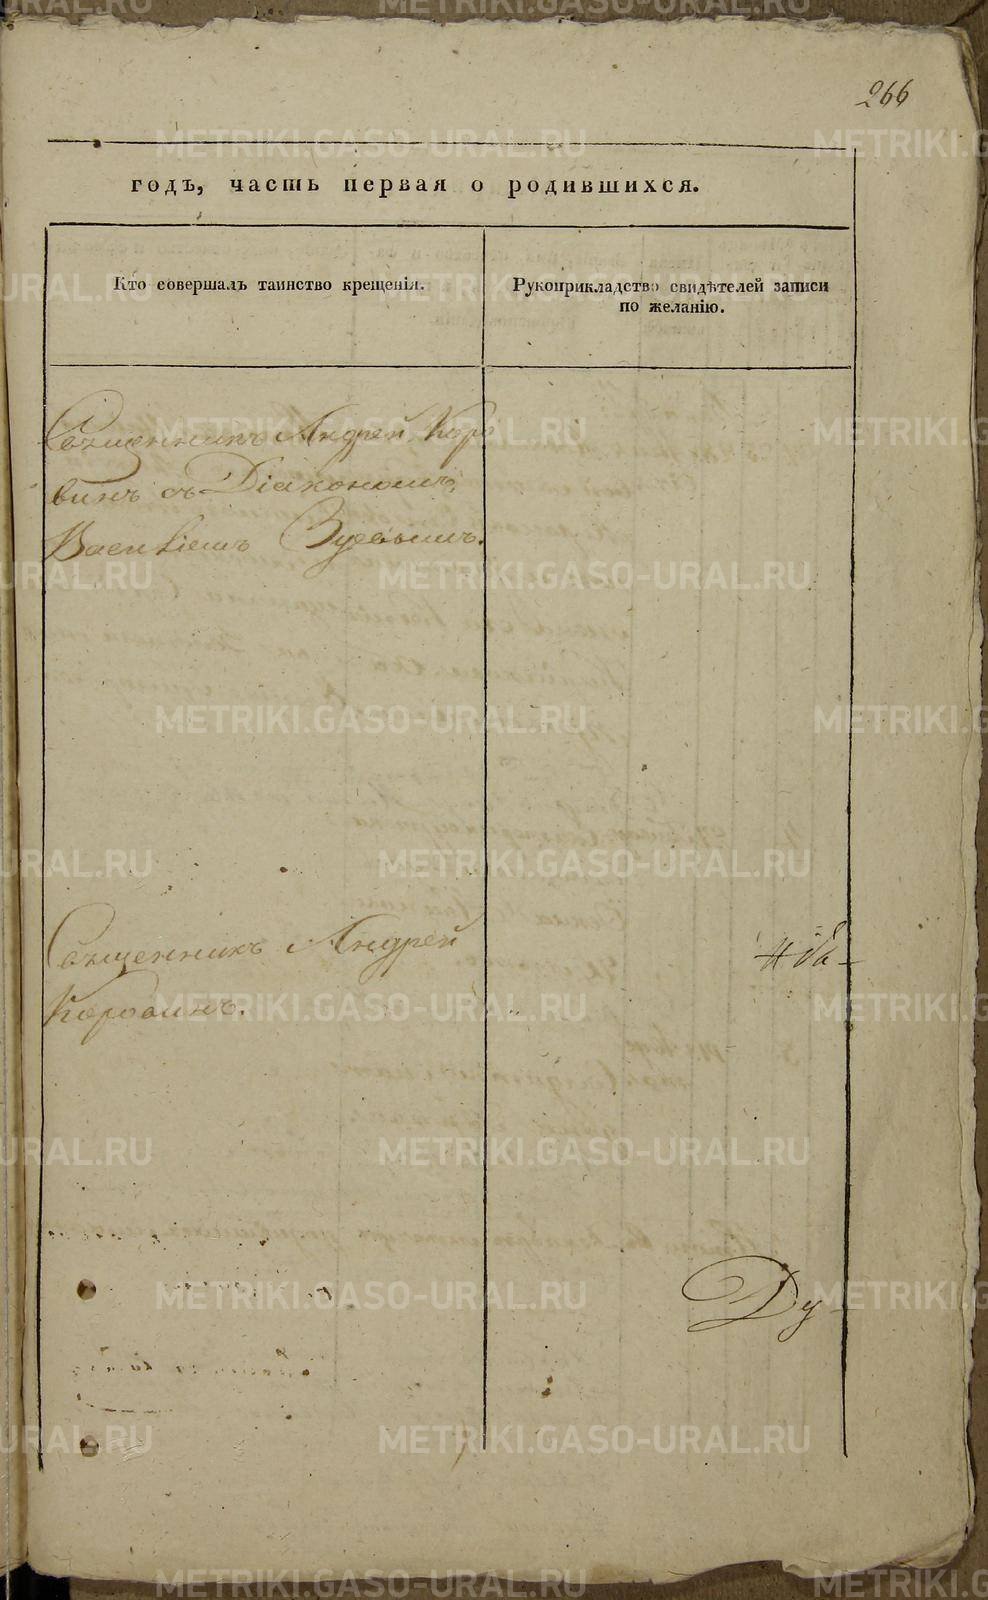 266
годъ, часть первая о родившихся.
Кто совершалъ таинство крещенія.
Рукоприкладство свидѣтелей записи
по желанію.
Священникъ Андрей Коро
винъ съ Діакономъ
Василіемъ
Священникъ Андрей
Коровинъ.
Ду-
METRIKI.GASO-URAL.RU